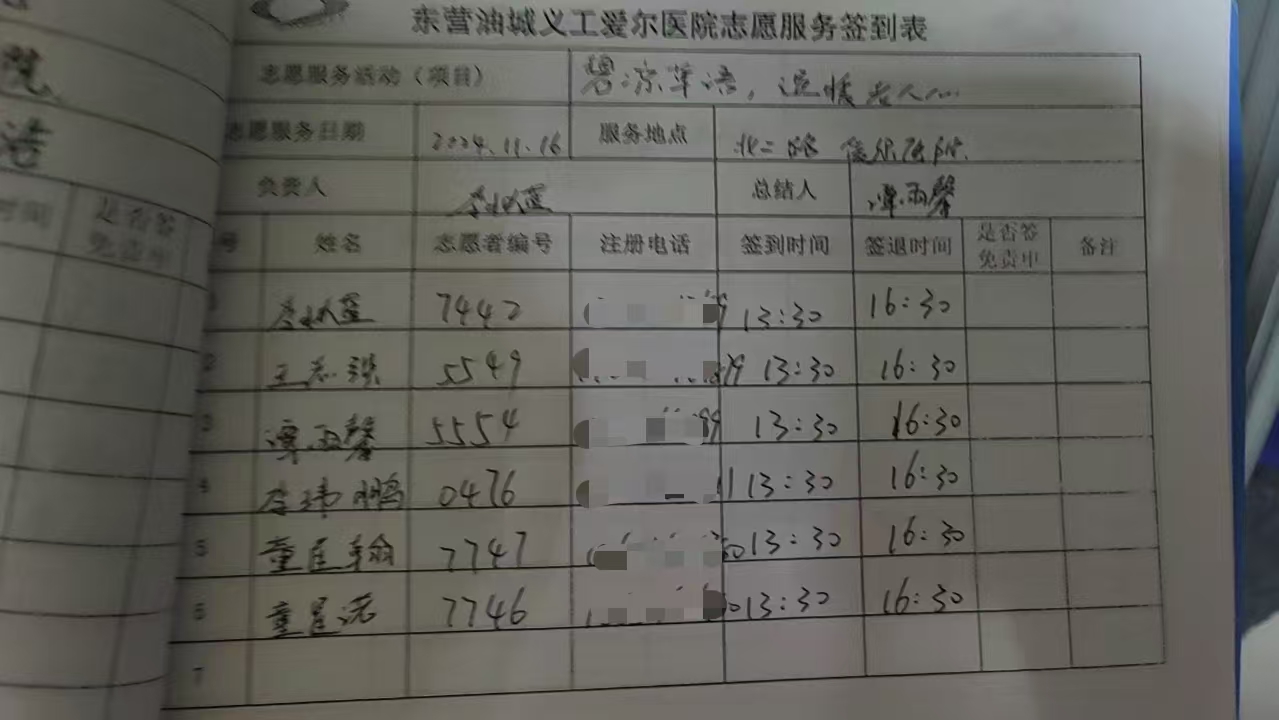 院
洁
时间 是否签免责申
东营油城义工爱尔医院志愿服务签到表
志愿服务活动（项目） 碧凉草语，送暖老人心
志愿服务日期 2024.11.16 服务地点 北二路
负责人 李 莲 总结人 谭雨馨
号 姓名 志愿者编号 注册电话 签到时间 签退时间 是否签免责申 备注
1 李 莲 7442 13:30 16:30
2 王志强 5549 13:30 16:30
3 谭雨馨 5554 13:30 16:30
4 李玮鹏 0476 13:30 16:30
5 童星翰 7747 13:30 16:30
6 童星诺 7746 13:30 16:30
7